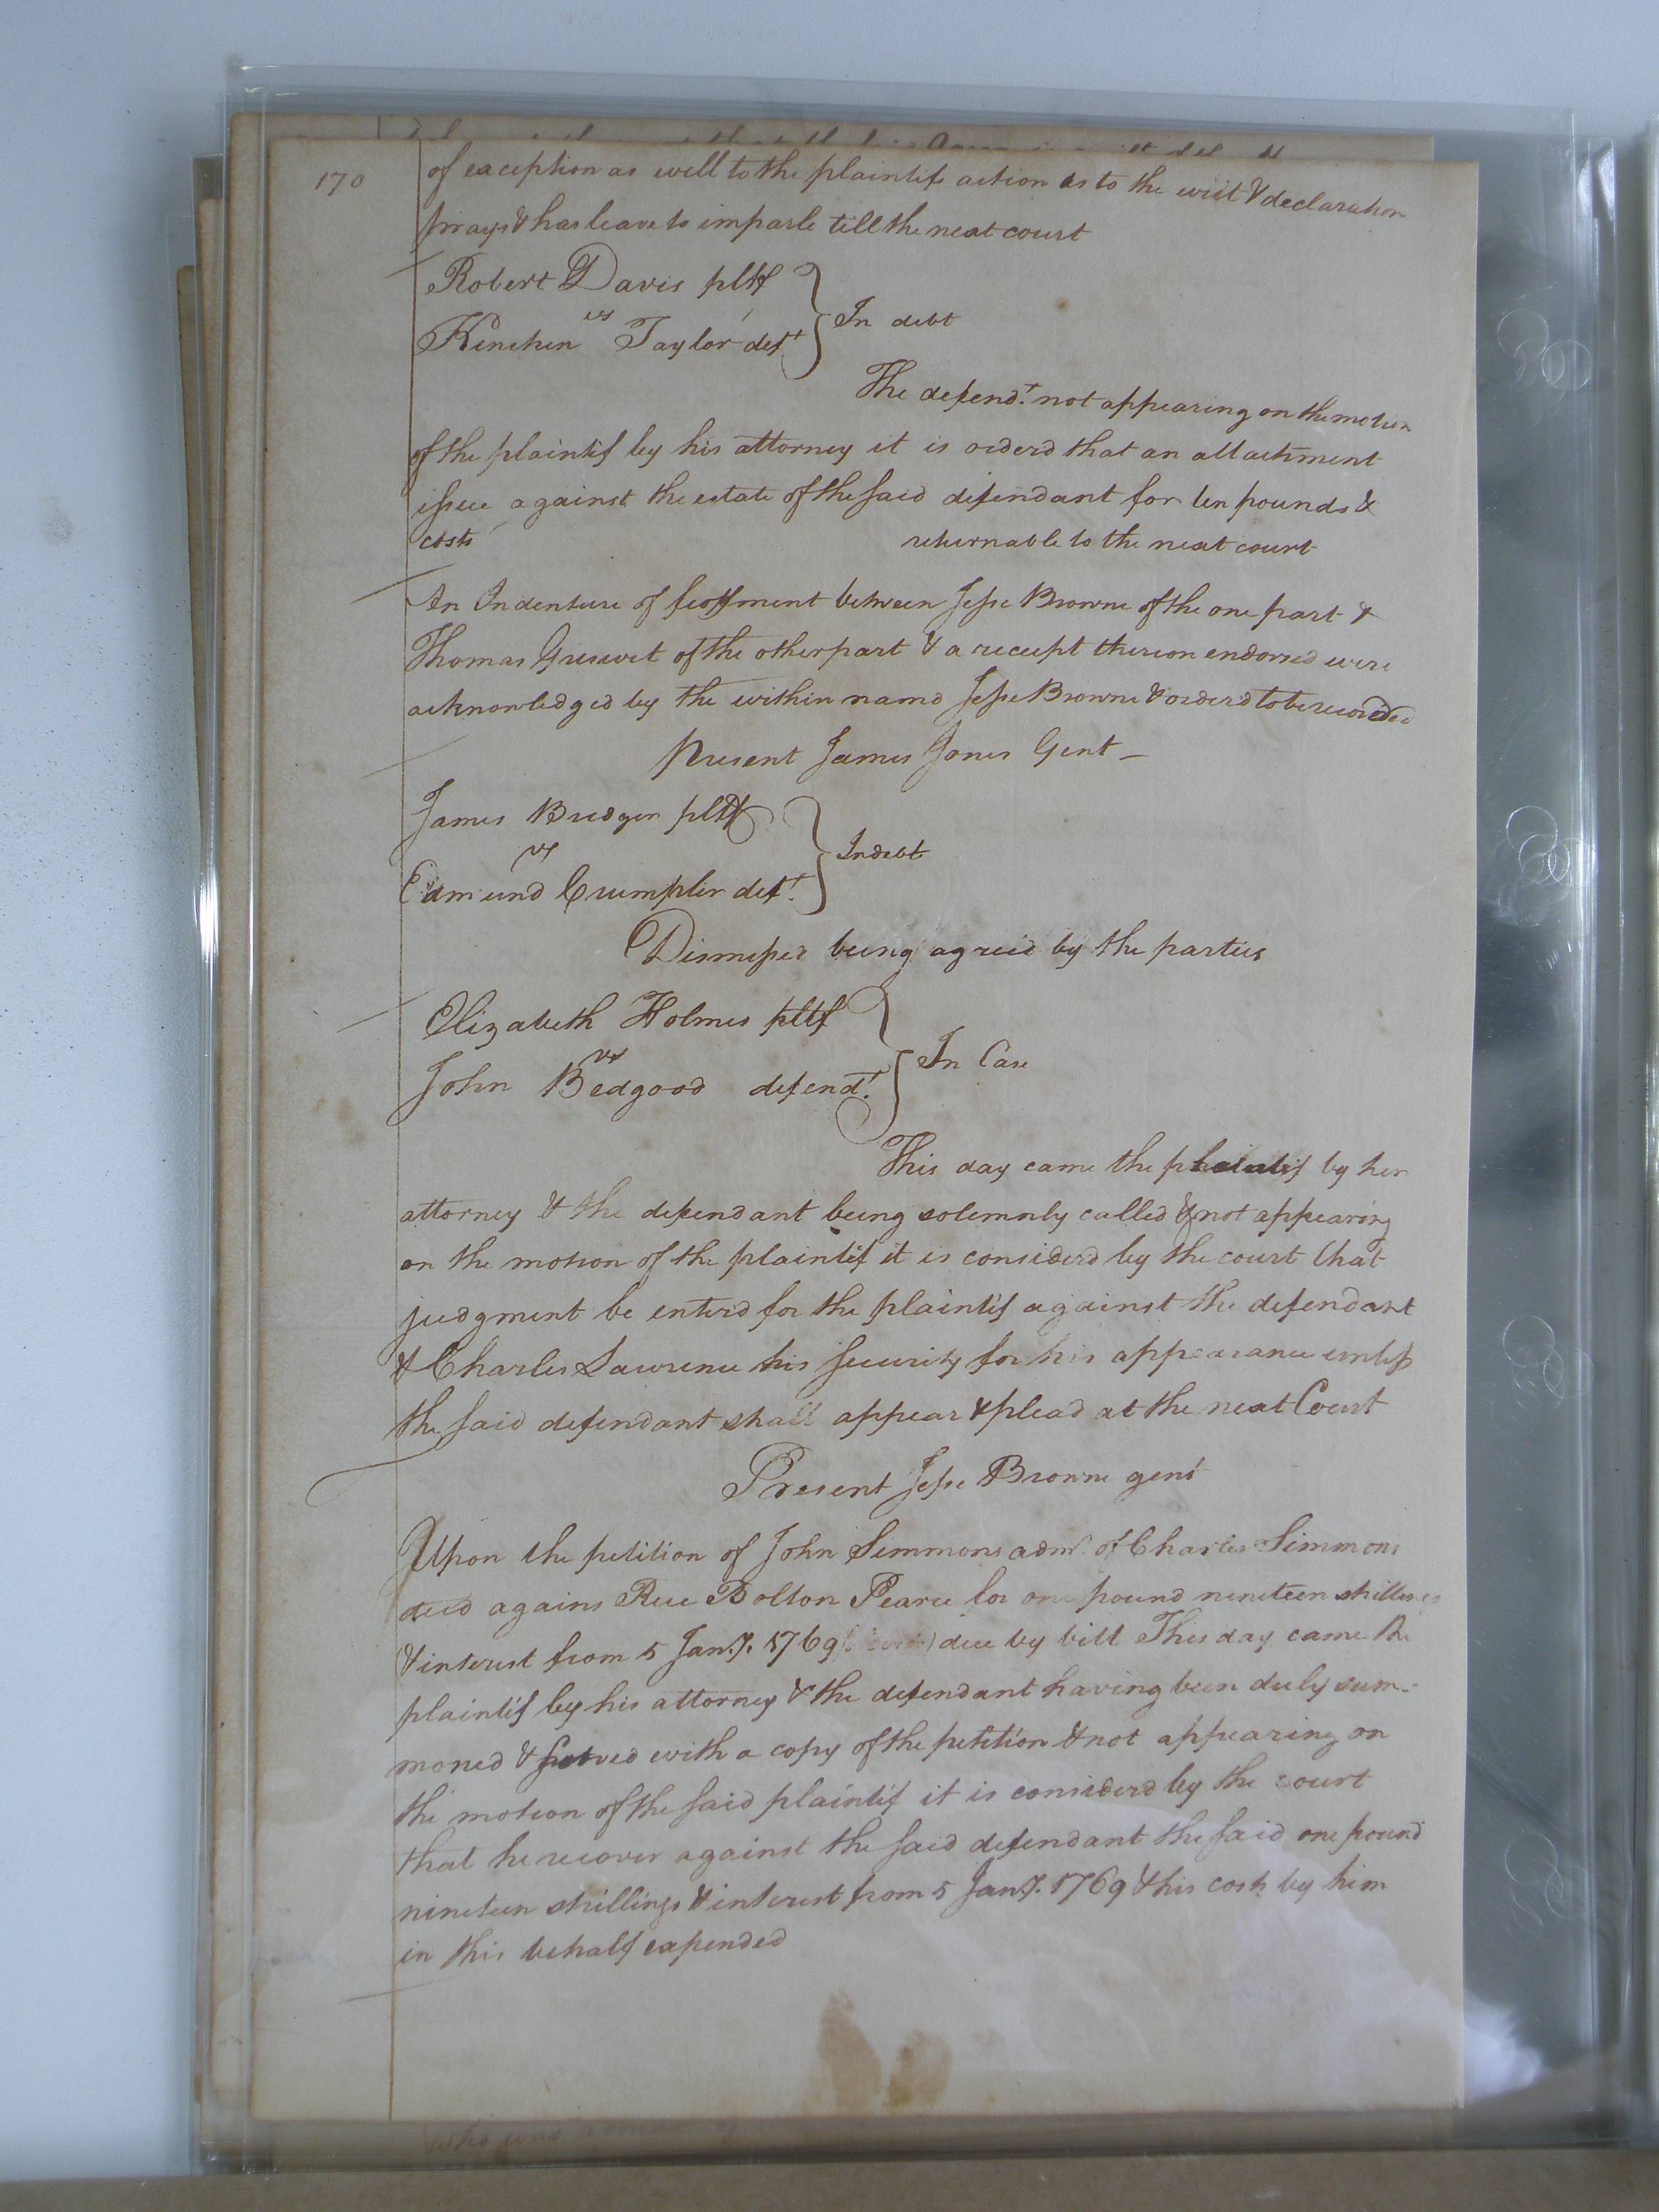 170
of exception as well to the plaintifs action as to the writ & declaration
prays & has leave to imparle till the next court
Robert Davis pltf
vs
In debt
Kinchin Taylor deft
The defendt. not appearing on the motion
of the plaintif by his attorney it is orderd that an attachment
issue against the estate of the said defendant for ten pounds &
costs returnable to the next court
An Indenture of feoffment between Jesse Browne of the one part &
Thomas Greswit of the other part & a receipt thereon endorsed were
acknowledged by the within namd Jesse Browne & orderd to be recorded
Present James Jones Gent
James Bridger pltf
vs
In debt
Edmund Crumpler deft.
Dismissed being agreed by the parties
Elizabeth Holmes pltf
vs
In Case
John Bedgood defendt.
This day came the plaintif by her
attorney & the defendant being solemnly called & not appearing
on the motion of the plaintif it is considerd by the court that
judgment be enterd for the plaintif against the defendant
& Charles Lawrence his security for his appearance unless
the said defendant shall appear & plead at the next Court
Present Jesse Browne gent
Upon the petition of John Simmons admr. of Charles Simmons
decd agains Rice Bolton Pearce for one pound nineteen shillings
& interest from 5 Jany. 1769 due by bill This day came the
plaintif by his attorney & the defendant having been duly sum-
moned & served with a copy of the petition & not appearing on
the motion of the said plaintif it is considerd by the court
that he recover against the said defendant the said one pound
nineteen shillings & interest from 5 Jany. 1769 & his costs by him
in this behalf expended